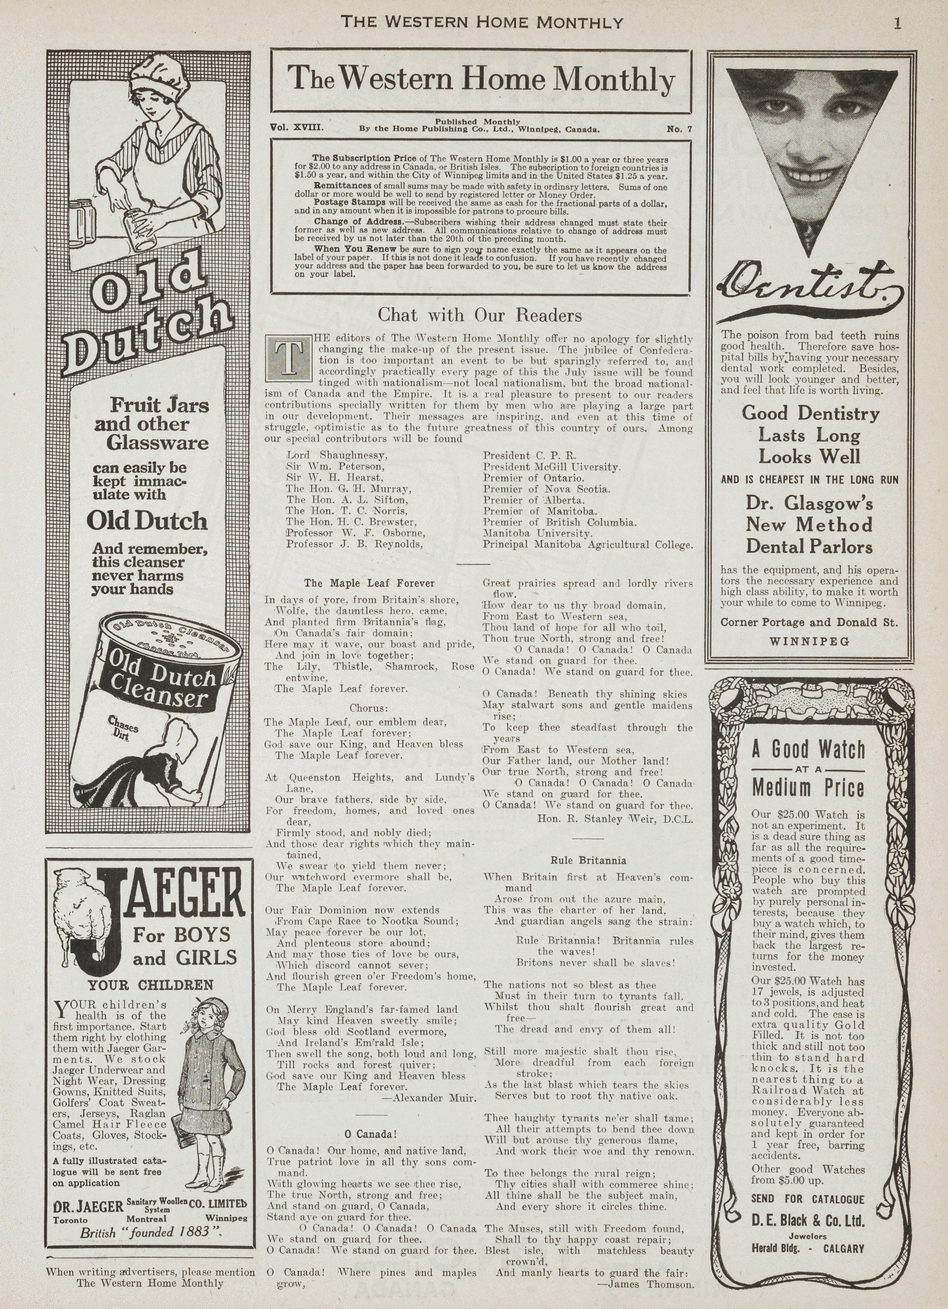 THE WESTERN HOME MONTHLY
1
Old
Dutch
Fruit Jars
and other
Glassware
can easily be
kept immac-
ulate with
Old Dutch
And remember,
this cleanser
never harms
your hands
Old Dutch Cleanser
Chases Dirt
Old Dutch
Cleanser
Chases
Dirt
JAEGER
For BOYS
and GIRLS
YOUR CHILDREN
YOUR children's
health is of the
first importance. Start
them right by clothing
them with Jaeger Gar-
ments. We stock
Jaeger Underwear and
Night Wear, Dressing
Gowns, Knitted Suits,
Golfers' Coat Sweat-
ers, Jerseys, Raglan
Camel Hair Fleece
Coats, Gloves, Stock-
ings, etc.
A fully illustrated cata-
logue will be sent free
on application
DR. JAEGER Sanitary Woollen System CO. LIMITED
Toronto Montreal Winnipeg
British "founded 1883".
When writing advertisers, please mention
The Western Home Monthly
The Western Home Monthly
Vol. XVIII.
Published Monthly
By the Home Publishing Co., Ltd., Winnipeg, Canada.
No. 7
The Subscription Price of The Western Home Monthly is $1.00 a year or three years
for $2.00 to any address in Canada, or British Isles. The subscription to foreign countries is
$1.50 a year, and within the City of Winnipeg limits and in the United States $1.25 a year.
Remittances of small sums may be made with safety in ordinary letters. Sums of one
dollar or more would be well to send by registered letter or Money Order.
Postage Stamps will be received the same as cash for the fractional parts of a dollar,
and in any amount when it is impossible for patrons to procure bills.
Change of Address.—Subscribers wishing their address changed must state their
former as well as new address. All communications relative to change of address must
be received by us not later than the 20th of the preceding month.
When You Renew be sure to sign your name exactly the same as it appears on the
label of your paper. If this is not done it leads to confusion. If you have recently changed
your address and the paper has been forwarded to you, be sure to let us know the address
on your label.
Chat with Our Readers
THE editors of The Western Home Monthly offer no apology for slightly
changing the make-up of the present issue. The jubilee of Confedera-
tion is too important an event to be but sparingly referred to, and
accordingly practically every page of this the July issue will be found
tinged with nationalism—not local nationalism, but the broad national-
ism of Canada and the Empire. It is a real pleasure to present to our readers
contributions specially written for them by men who are playing a large part
in our development. Their messages are inspiring, and even at this time of
struggle, optimistic as to the future greatness of this country of ours. Among
our special contributors will be found
Lord Shaughnessy, President C. P. R.
Sir Wm. Peterson, President McGill Uiversity.
Sir W. H. Hearst, Premier of Ontario.
The Hon. G. H. Murray, Premier of Nova Scotia.
The Hon. A. L. Sifton, Premier of Alberta.
The Hon. T. C. Norris, Premier of Manitoba.
The Hon. H. C. Brewster, Premier of British Columbia.
Professor W. F. Osborne, Manitoba University.
Professor J. B. Reynolds, Principal Manitoba Agricultural College.
The Maple Leaf Forever
In days of yore, from Britain's shore,
Wolfe, the dauntless hero, came,
And planted firm Britannia's flag,
On Canada's fair domain;
Here may it wave, our boast and pride,
And join in love together;
The Lily, Thistle, Shamrock, Rose
entwine,
The Maple Leaf forever.
Chorus:
The Maple Leaf, our emblem dear,
The Maple Leaf forever;
God save our King, and Heaven bless
The Maple Leaf forever.
At Queenston Heights, and Lundy's
Lane,
Our brave fathers, side by side,
For freedom, homes, and loved ones
dear,
Firmly stood, and nobly died;
And those dear rights which they main-
tained,
We swear to yield them never;
Our watchword evermore shall be,
The Maple Leaf forever.
Our Fair Dominion now extends
From Cape Race to Nootka Sound;
May peace forever be our lot,
And plenteous store abound;
And may those ties of love be ours,
Which discord cannot sever;
And flourish green o'er Freedom's home,
The Maple Leaf forever.
On Merry England's far-famed land
May kind Heaven sweetly smile;
God bless old Scotland evermore,
And Ireland's Em'rald Isle;
Then swell the song, both loud and long,
Till rocks and forest quiver;
God save our King and Heaven bless
The Maple Leaf forever.
—Alexander Muir.
O Canada!
O Canada! Our home, and native land,
True patriot love in all thy sons com-
mand.
With glowing hearts we see thee rise,
The true North, strong and free;
And stand on guard, O Canada,
Stand aye on guard for thee.
O Canada! O Canada! O Canada
We stand on guard for thee.
O Canada! We stand on guard for thee.
O Canada! Where pines and maples
grow,
Great prairies spread and lordly rivers
flow.
How dear to us thy broad domain,
From East to Western sea,
Thou land of hope for all who toil,
Thou true North, strong and free!
O Canada! O Canada! O Canada
We stand on guard for thee.
O Canada! We stand on guard for thee.
O Canada! Beneath thy shining skies
May stalwart sons and gentle maidens
rise;
To keep thee steadfast through the
years
From East to Western sea,
Our Father land, our Mother land!
Our true North, strong and free!
O Canada! O Canada! O Canada
We stand on guard for thee.
O Canada! We stand on guard for thee.
Hon. R. Stanley Weir, D.C.L.
Rule Britannia
When Britain first at Heaven's com-
mand
Arose from out the azure main,
This was the charter of her land,
And guardian angels sang the strain:
Rule Britannia! Britannia rules
the waves!
Britons never shall be slaves!
The nations not so blest as thee
Must in their turn to tyrants fall,
Whilst thou shalt flourish great and
free—
The dread and envy of them all!
Still more majestic shalt thou rise,
More dreadful from each foreign
stroke;
As the last blast which tears the skies
Serves but to root thy native oak.
Thee haughty tyrants ne'er shall tame;
All their attempts to bend thee down
Will but arouse thy generous flame,
And work their woe and thy renown.
To thee belongs the rural reign;
Thy cities shall with commerce shine;
All thine shall be the subject main,
And every shore it circles thine.
The Muses, still with Freedom found,
Shall to thy happy coast repair;
Blest isle, with matchless beauty
crown'd,
And manly hearts to guard the fair:
—James Thomson.
Dentist.
The poison from bad teeth ruins
good health. Therefore save hos-
pital bills by having your necessary
dental work completed. Besides,
you will look younger and better,
and feel that life is worth living.
Good Dentistry
Lasts Long
Looks Well
AND IS CHEAPEST IN THE LONG RUN
Dr. Glasgow's
New Method
Dental Parlors
has the equipment, and his opera-
tors the necessary experience and
high class ability, to make it worth
your while to come to Winnipeg.
Corner Portage and Donald St.
WINNIPEG
A Good Watch
AT A
Medium Price
Our $25.00 Watch is
not an experiment. It
is a dead sure thing as
far as all the require-
ments of a good time-
piece is concerned.
People who buy this
watch are prompted
by purely personal in-
terests, because they
buy a watch which, to
their mind, gives them
back the largest re-
turns for the money
invested.
Our $25.00 Watch has
17 jewels, is adjusted
to 3 positions, and heat
and cold. The case is
extra quality Gold
Filled. It is not too
thick and still not too
thin to stand hard
knocks. It is the
nearest thing to a
Railroad Watch at
considerably less
money. Everyone ab-
solutely guaranteed
and kept in order for
1 year free, barring
accidents.
Other good Watches
from $5.00 up.
SEND FOR CATALOGUE
D. E. Black & Co. Ltd.
Jewelers
Herald Bldg. - CALGARY